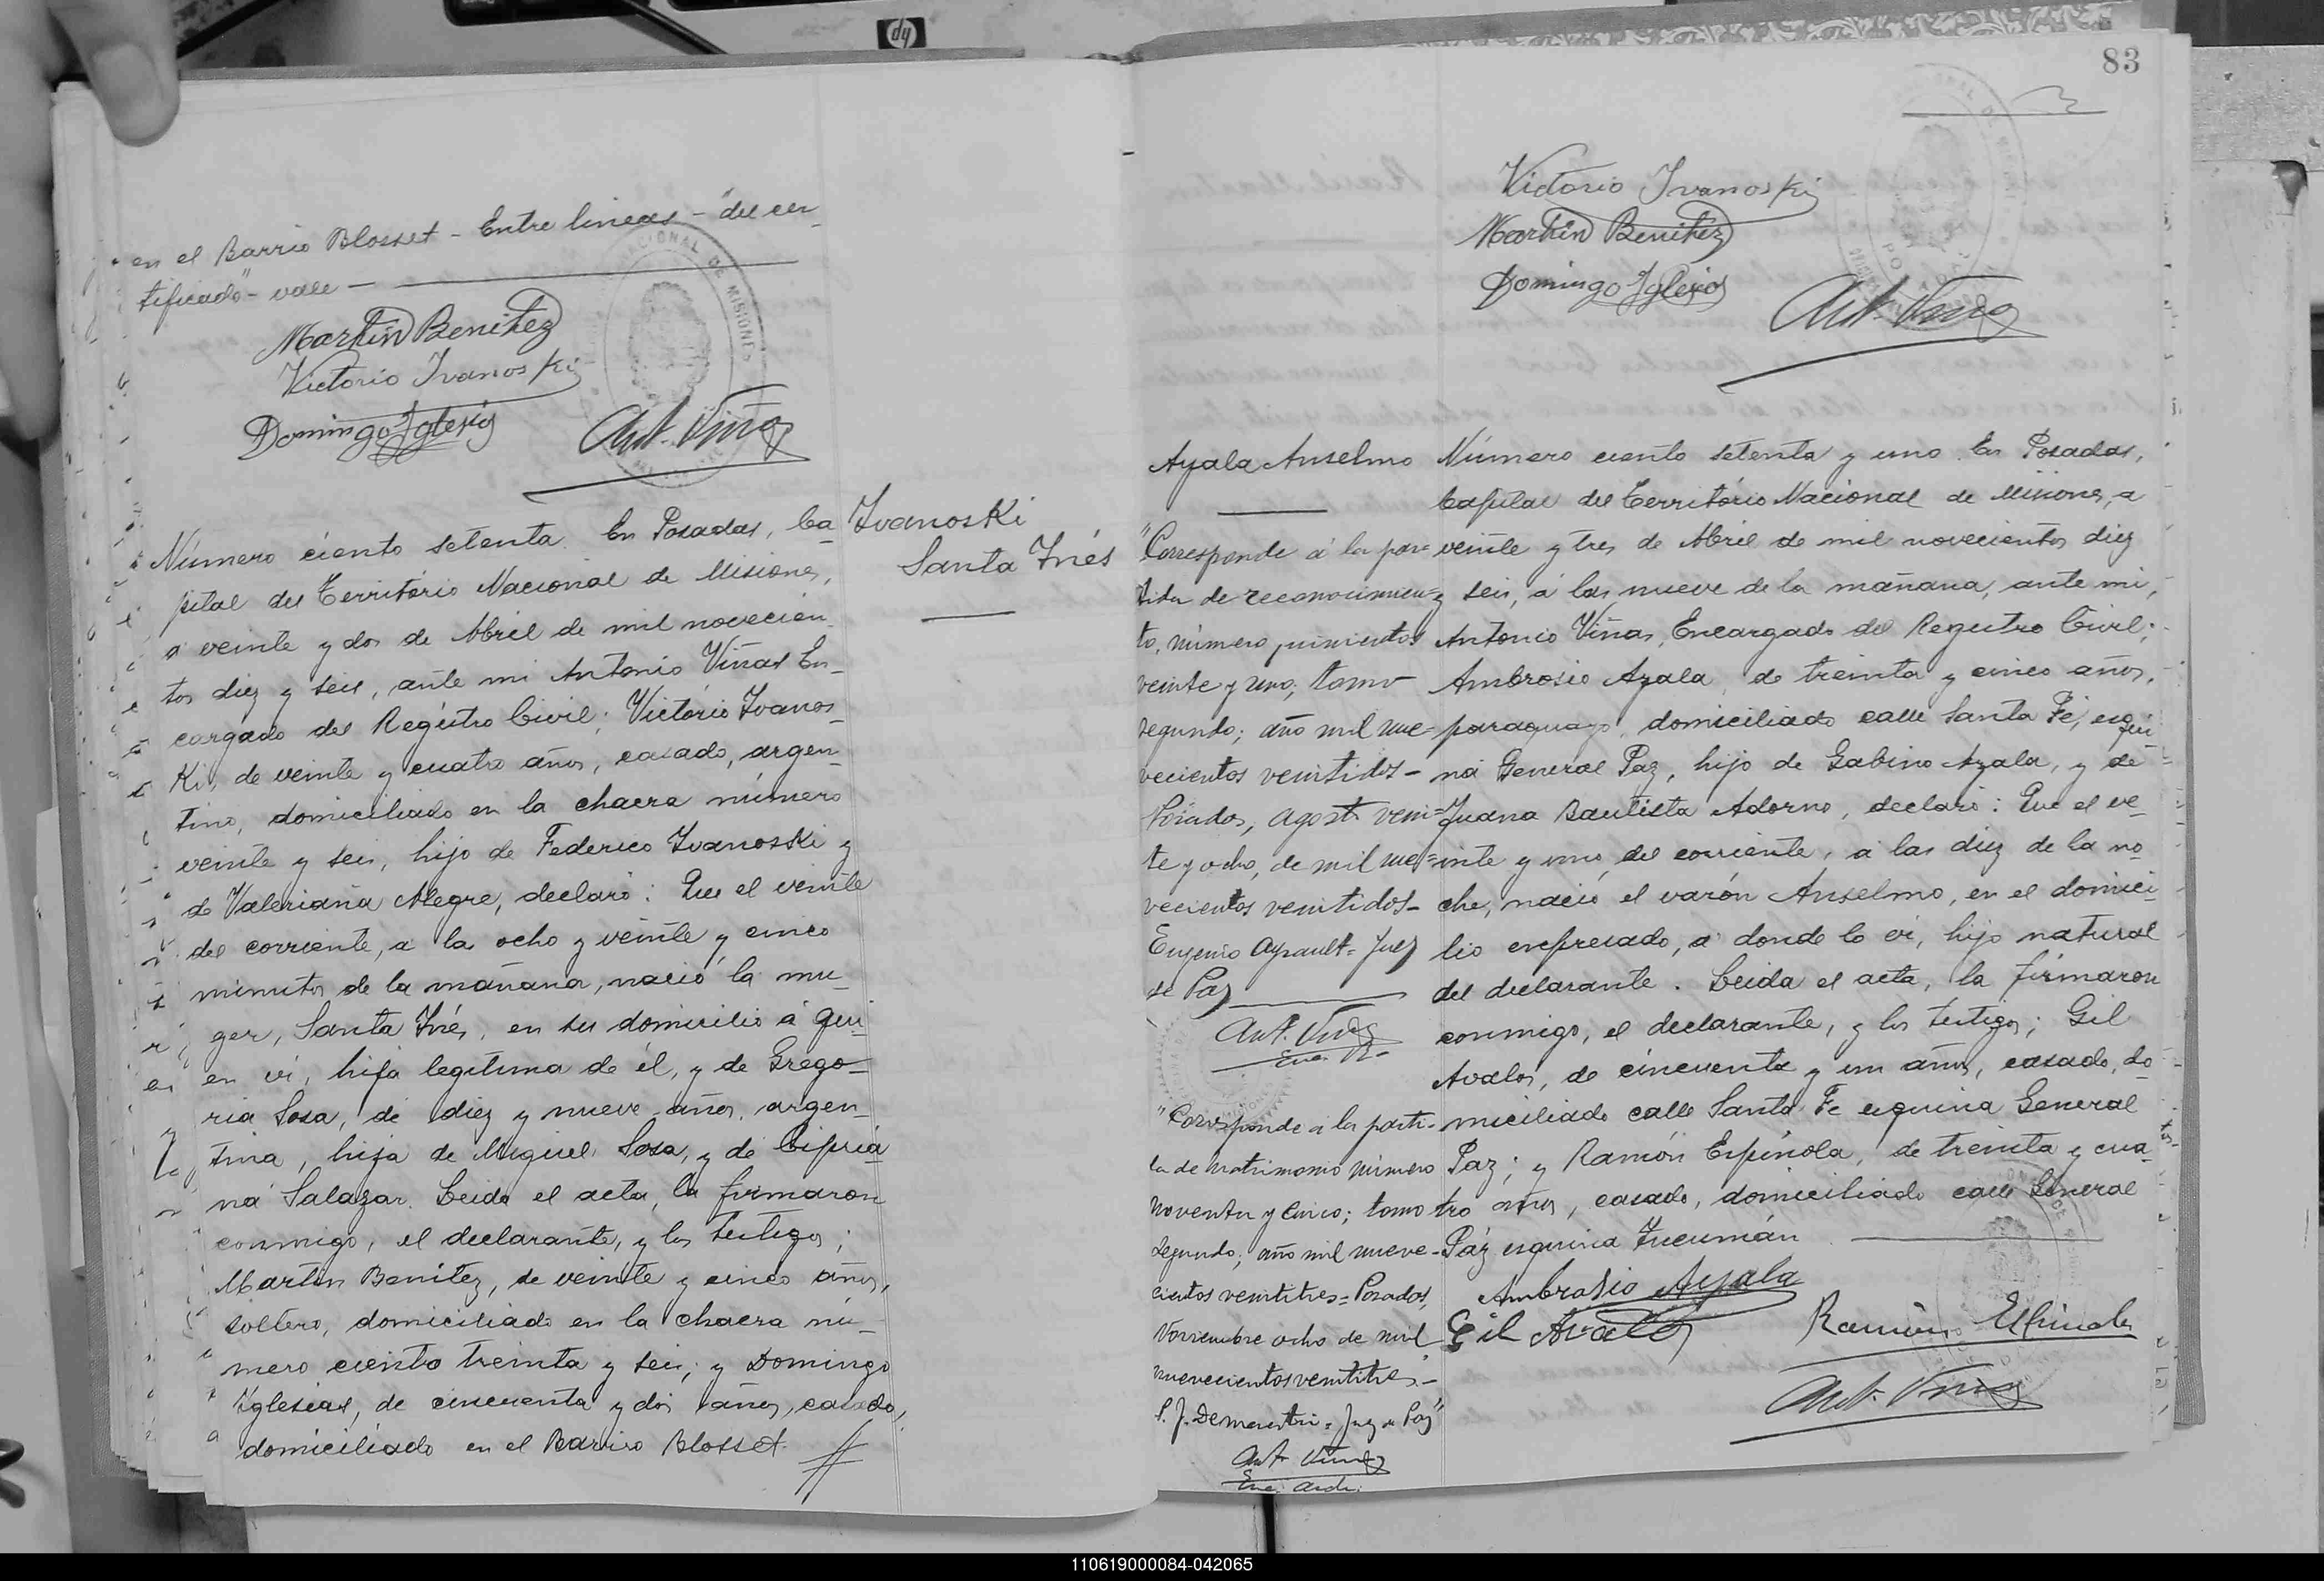 en el Barrio Blosset - Entre lineas - "del cer
tificado" - vale -
Martín Benitez
Victorio Ivanoski
Domingo Iglesias
Ant. Viñas
Número ciento setenta. En Posadas, Ca
pital del Territorio Nacional de Misiones,
a veinte y dos de Abril de mil novecien
tos diez y seis, ante mi Antonio Viñas En-
cargado del Registro Civil; Victorio Ivanos-
Ki, de veinte y cuatro años, casado, argen-
tino, domiciliado en la chacra número
veinte y seis, hijo de Federico Ivanosski y
de Valeriana Alegre, declaró: Que el veinte
del corriente, a la ocho y veinte y cinco
minutos de la mañana, nació la mu-
ger, Santa Inés, en su domicilio á qui-
en vi, hija legítima de él, y de Grego-
ria Sosa, de diez y nueve años, argen-
tina, hija de Miguel Sosa, y de Cipria-
na Salazar. Leida el acta, la firmaron
conmigo, el declarante, y los testigos;
Martin Benitez, de veinte y cinco años,
soltero, domiciliado en la chacra nú-
mero ciento treinta y seis; y Domingo
Iglesias, de cincuenta y dos años, casado,
domiciliado en el Barrio Blosset.
Ivanoski
Santa Inés
83
Victorio Ivanoski
Martín Benitez
Domingo Iglesias
Ant. Viñas
Ayala Anselmo
"Corresponde á la par=
tida de reconocimien=
to, número quinientos
veinte y uno, tomo
segundo; año mil nue=
vecientos veintidos -
Posadas, agosto vein=
te y ocho, de mil nue=
vecientos veintidos -
Eugenio Ayrault = Juez
de Paz
Ant. Viñas
"Corresponde á la parti-
da de matrimonio número
noventa y cinco; tomo
segundo; año mil nueve-
cientos veintitres = Posadas,
Noviembre ocho de mil
nuevecientos veintitres -
Juez de Paz"
Ant. Viñas
Número ciento setenta y uno. En Posadas,
Capital del Territorio Nacional de Misiones, a
veinte y tres de Abril de mil novecientos diez
y seis, á las nueve de la mañana, ante mi,
Antonio Viñas, Encargado del Registro Civil;
Ambrosio Ayala, de treinta y cinco años,
paraguayo, domiciliado calle Santa Fé, esqui
na General Paz, hijo de Gabino Ayala, y de
Juana Bautista Adorno, declaró: Que el ve-
inte y uno, del corriente, á las diez de la no
che, nació el varón Anselmo, en el domici-
lio expresado, a donde lo vi, hijo natural
del declarante. Leida el acta, la firmaron
conmigo, el declarante, y los testigos; Gil
Avalos, de cincuenta y un años, casado, do
miciliado calle Santa Fe esquina General
Paz; y Ramón Espínola, de treinta y cua-
tro años, casado, domiciliado calle General
Páz esquina Tucumán
Ambrosio Ayala
Gil Avalos
Ramón Espinola
Ant. Viñas
110619000084-042065